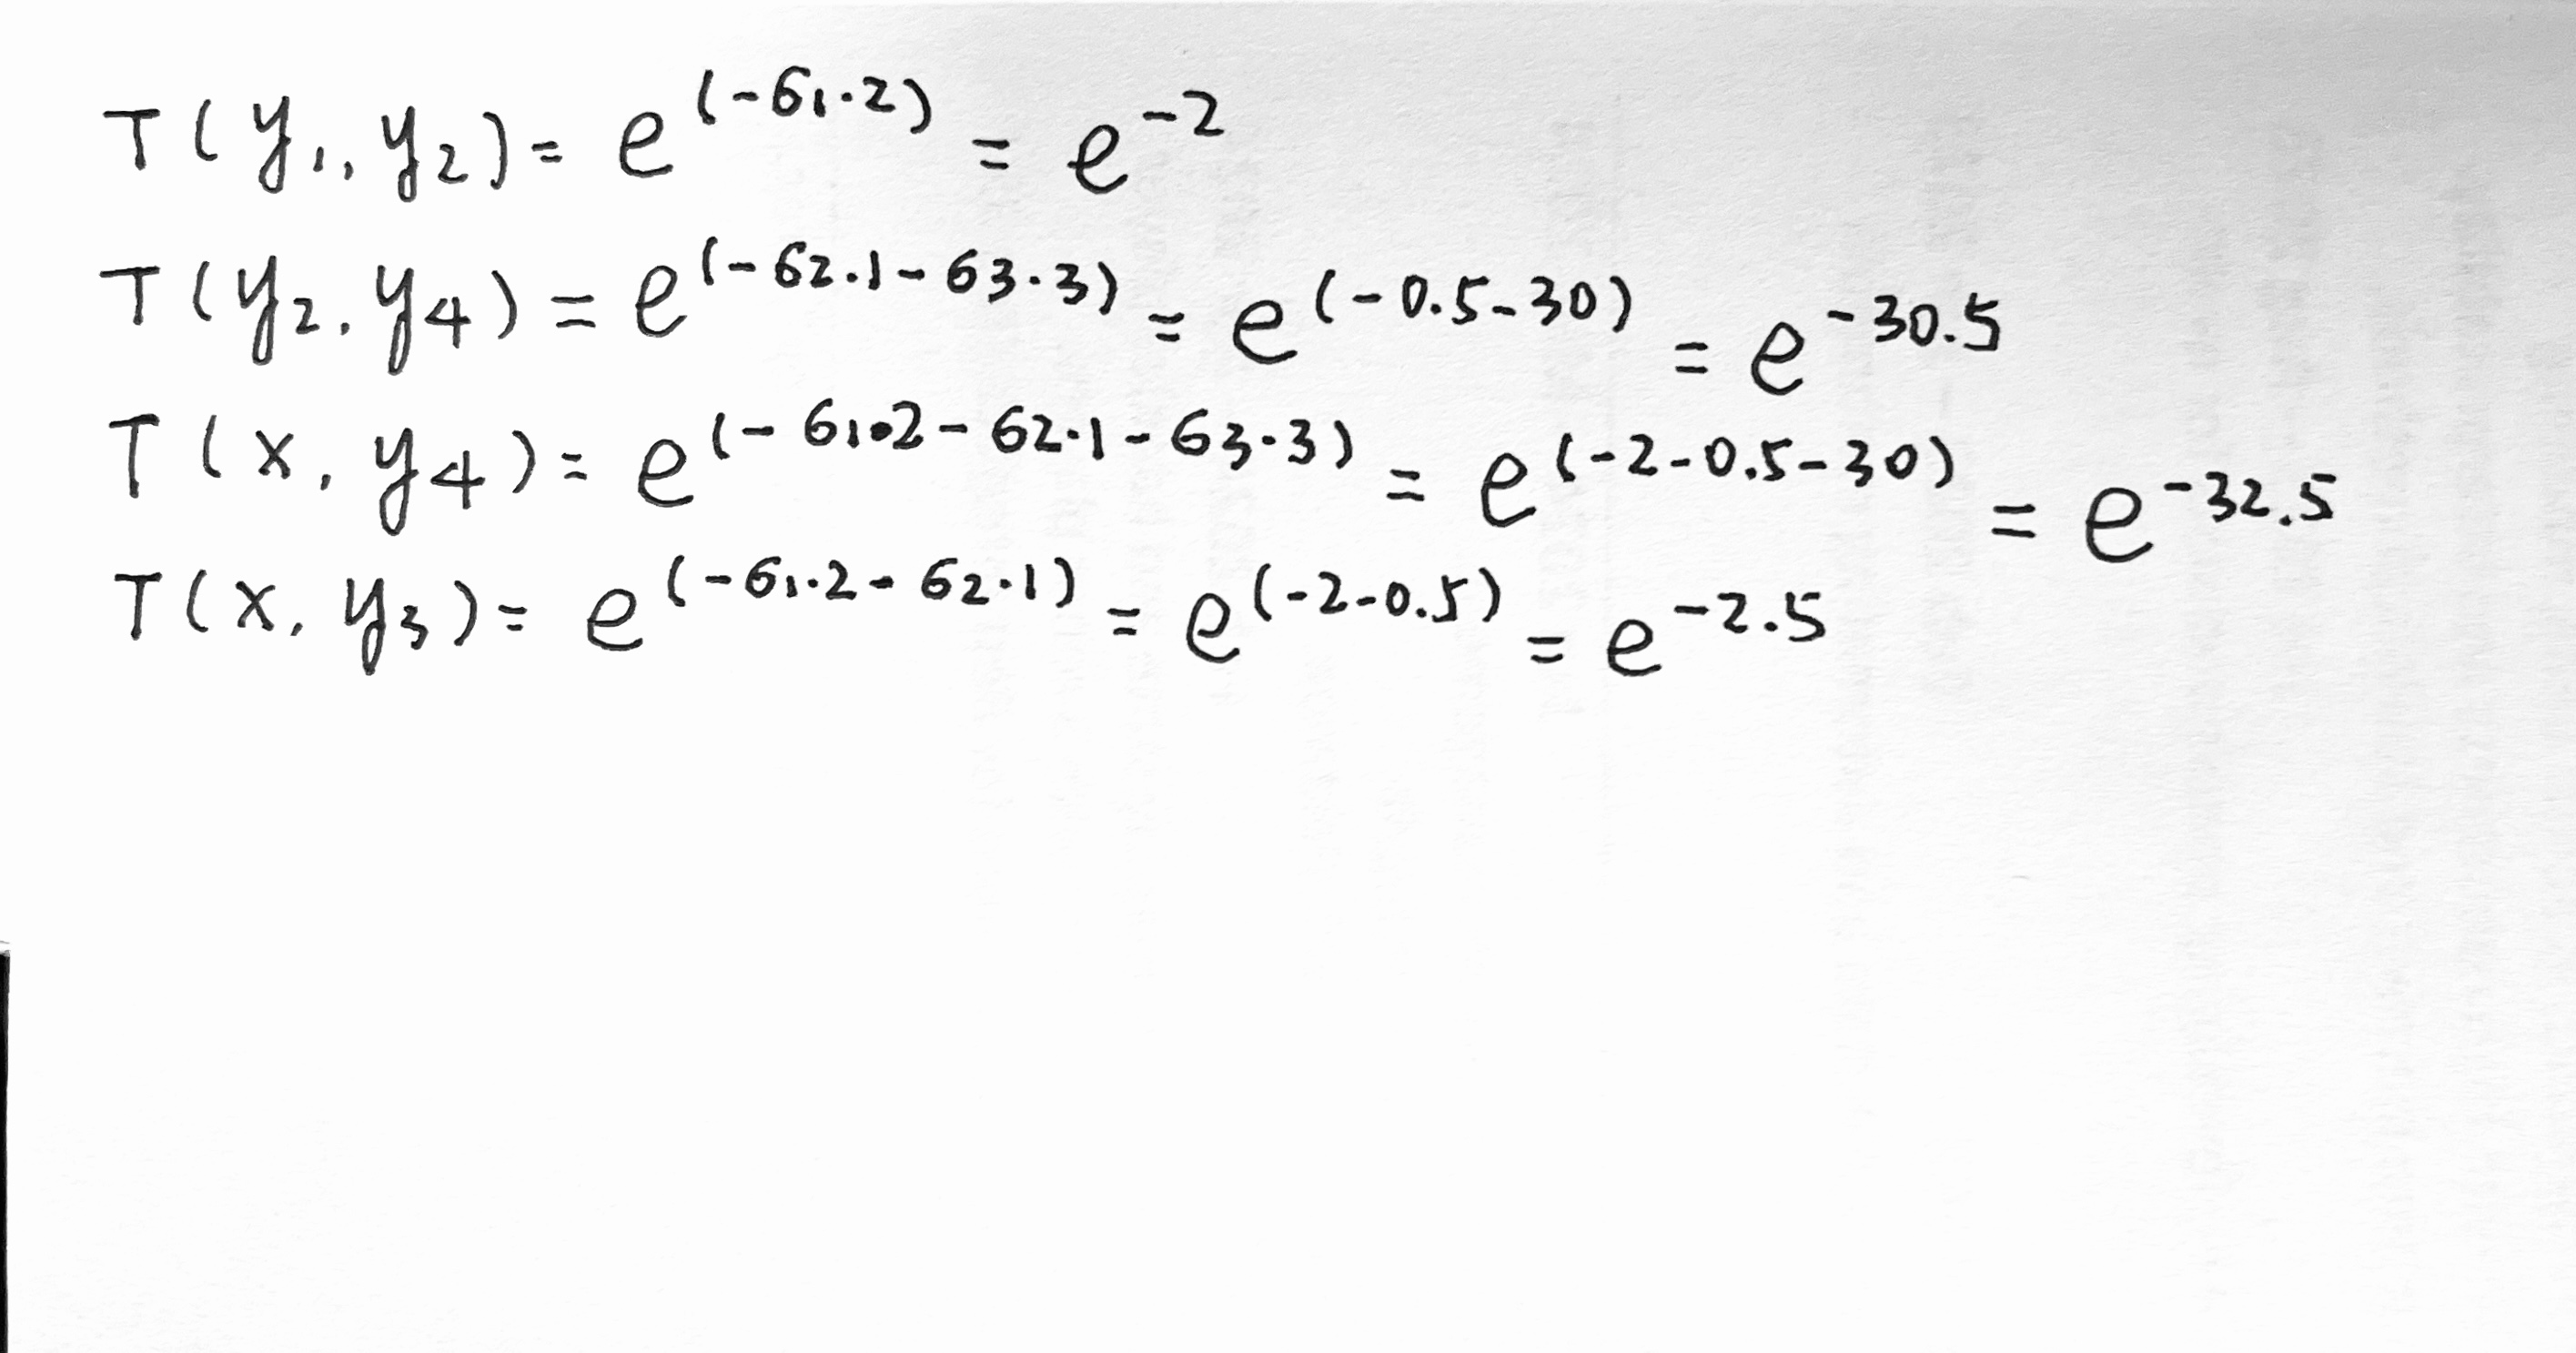 T(y₁, y₂) = e^(-6₁·2) = e^-2
T(y₂, y₄) = e^(-6₂·1-6₃·3) = e^(-0.5-30) = e^-30.5
T(x, y₄) = e^(-6₁·2-6₂·1-6₃·3) = e^(-2-0.5-30) = e^-32.5
T(x, y₃) = e^(-6₁·2-6₂·1) = e^(-2-0.5) = e^-2.5